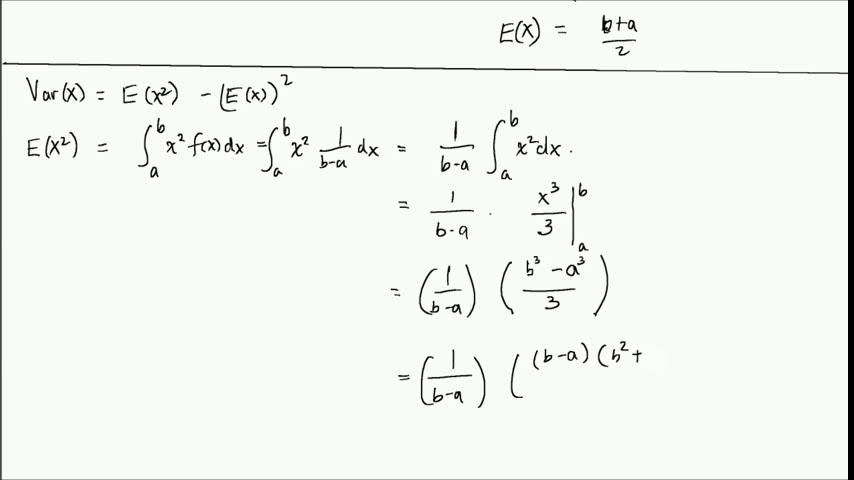 E(X) = b+a/2
Var(X) = E(X²) - (E(X))²
E(X²) = ∫ₐᵇ x² f(x) dx = ∫ₐᵇ x² 1/b-a dx = 1/b-a ∫ₐᵇ x² dx.
= 1/b-a · x³/3 |ₐᵇ
= (1/b-a) (b³-a³/3)
= (1/b-a) ((b-a)(b²+